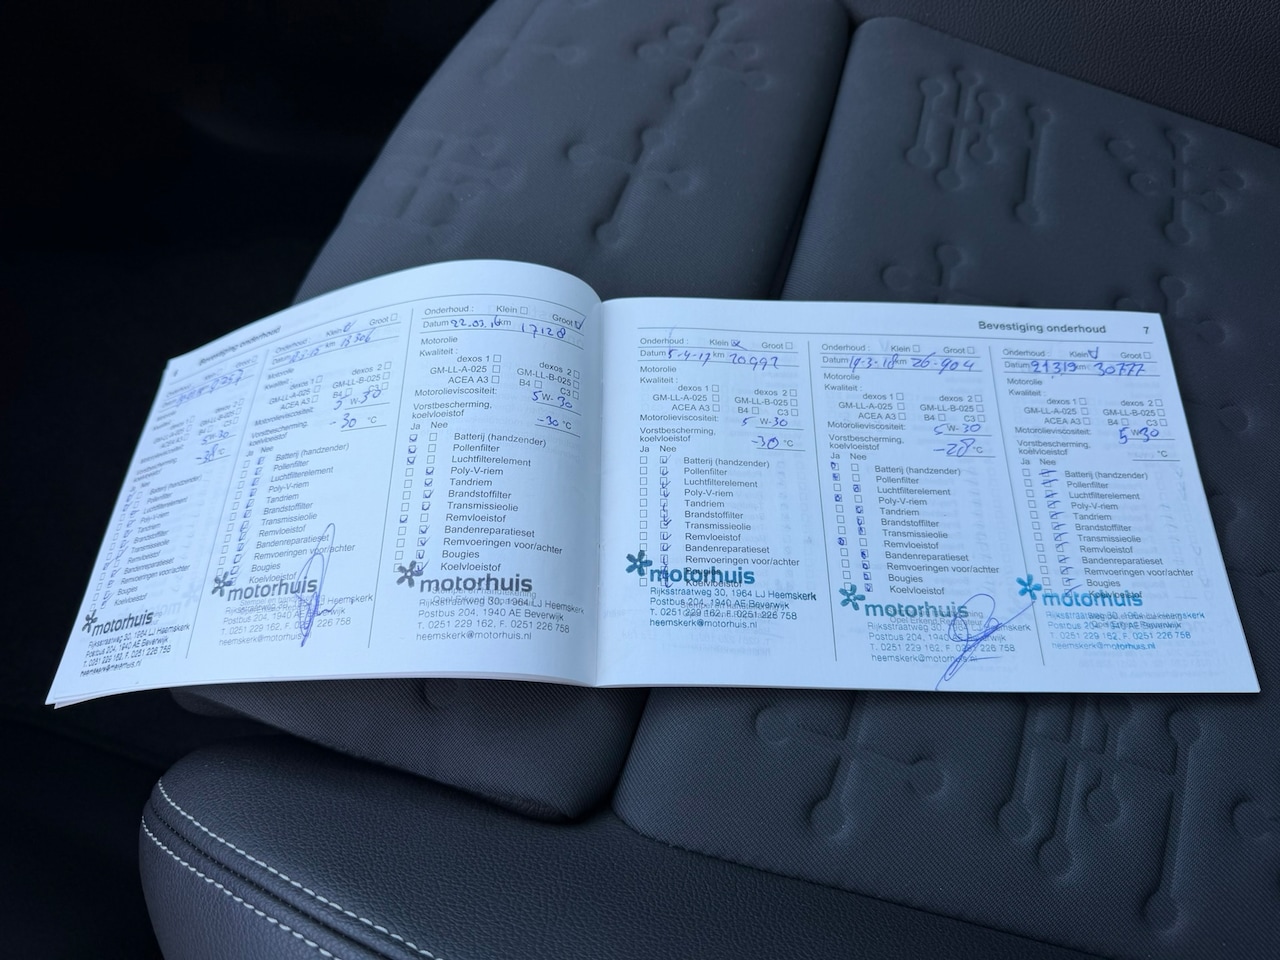 Bevestiging onderhoud
Motorolie
Kwaliteit:
dexos 2
GM-LL-A-025 GM-LL-B-025
ACEA A3 B4 C3
Motorolieviscositeit:
5W-30
Vorstbescherming, koelvloeistof
°C
Ja Nee
Batterij (handzender)
Pollenfilter
Luchtfilterelement
Poly-V-riem
Tandriem
Brandstoffilter
Transmissieolie
Remvloeistof
Bandenreparatieset
Remvoeringen voor/achter
Bougies
Koelvloeistof
motorhuis
Rijksstraatweg 30, 1964 LJ Heemskerk
Postbus 204, 1940 AE Beverwijk
T. 0251 229 162, F. 0251 226 758
heemskerk@motorhuis.nl
Onderhoud: Klein Groot
Datum km
Motorolie
Kwaliteit:
dexos 1 dexos 2
GM-LL-A-025 GM-LL-B-025
ACEA A3 B4 C3
Motorolieviscositeit: 5 W-30
Vorstbescherming,
koelvloeistof -30 °C
Ja Nee
Batterij (handzender)
Pollenfilter
Luchtfilterelement
Poly-V-riem
Tandriem
Brandstoffilter
Transmissieolie
Remvloeistof
Bandenreparatieset
Remvoeringen voor/achter
Bougies
Koelvloeistof
motorhuis
Rijksstraatweg 30, 1964 LJ Heemskerk
Postbus 204, 1940 AE Beverwijk
T. 0251 229 162, F. 0251 226 758
heemskerk@motorhuis.nl
Onderhoud: Klein Groot
Datum 22.03.16 km 17128
Motorolie
Kwaliteit:
dexos 1 dexos 2
GM-LL-A-025 GM-LL-B-025
ACEA A3 B4 C3
Motorolieviscositeit: 5 W-30
Vorstbescherming,
koelvloeistof -30 °C
Ja Nee
Batterij (handzender)
Pollenfilter
Luchtfilterelement
Poly-V-riem
Tandriem
Brandstoffilter
Transmissieolie
Remvloeistof
Bandenreparatieset
Remvoeringen voor/achter
Bougies
Koelvloeistof
motorhuis
Rijksstraatweg 30, 1964 LJ Heemskerk
Postbus 204, 1940 AE Beverwijk
T. 0251 229 162, F. 0251 226 758
heemskerk@motorhuis.nl
Bevestiging onderhoud 7
Onderhoud: Klein Groot
Datum 5-4-17 km 20992
Motorolie
Kwaliteit:
dexos 1 dexos 2
GM-LL-A-025 GM-LL-B-025
ACEA A3 B4 C3
Motorolieviscositeit: 5 W-30
Vorstbescherming,
koelvloeistof -30 °C
Ja Nee
Batterij (handzender)
Pollenfilter
Luchtfilterelement
Poly-V-riem
Tandriem
Brandstoffilter
Transmissieolie
Remvloeistof
Bandenreparatieset
Remvoeringen voor/achter
Bougies
Koelvloeistof
motorhuis
Rijksstraatweg 30, 1964 LJ Heemskerk
Postbus 204, 1940 AE Beverwijk
T. 0251 229 162, F. 0251 226 758
heemskerk@motorhuis.nl
Onderhoud: Klein Groot
Datum 19-3-18 km 26-904
Motorolie
Kwaliteit:
dexos 1 dexos 2
GM-LL-A-025 GM-LL-B-025
ACEA A3 B4 C3
Motorolieviscositeit: 5 W-30
Vorstbescherming,
koelvloeistof -28 °C
Ja Nee
Batterij (handzender)
Pollenfilter
Luchtfilterelement
Poly-V-riem
Tandriem
Brandstoffilter
Transmissieolie
Remvloeistof
Bandenreparatieset
Remvoeringen voor/achter
Bougies
Koelvloeistof
motorhuis
Postbus 204, 1940 AE Beverwijk
T. 0251 229 162, F. 0251 226 758
heemskerk@motorhuis.nl
Onderhoud: Klein Groot
Datum 21319 km 30777
Motorolie
Kwaliteit:
dexos 1 dexos 2
GM-LL-A-025 GM-LL-B-025
ACEA A3 B4 C3
Motorolieviscositeit: 5 W-30
Vorstbescherming,
koelvloeistof °C
Ja Nee
Batterij (handzender)
Pollenfilter
Luchtfilterelement
Poly-V-riem
Tandriem
Brandstoffilter
Transmissieolie
Remvloeistof
Bandenreparatieset
Remvoeringen voor/achter
Bougies
Koelvloeistof
motorhuis
Rijksstraatweg 30, 1964 LJ Heemskerk
Postbus 204, 1940 AE Beverwijk
T. 0251 229 162, F. 0251 226 758
heemskerk@motorhuis.nl